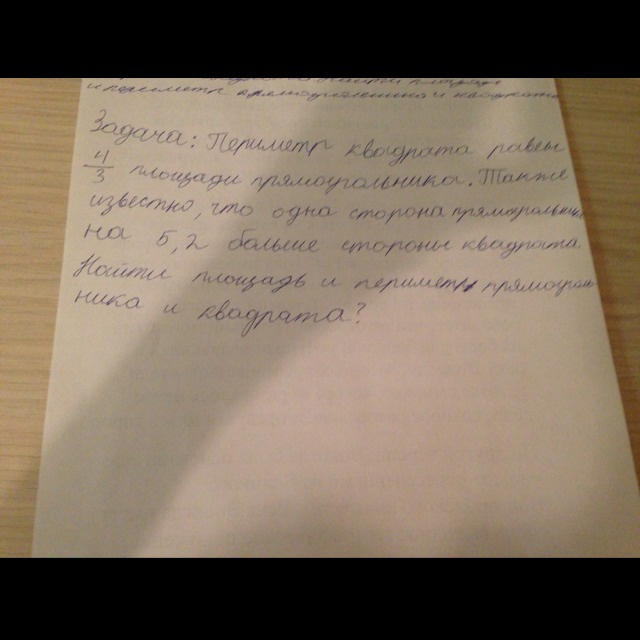 и периметр прямоугольника и квадрата
Задача: Периметр квадрата равен
4/3 площади прямоугольника. Также
известно, что одна сторона прямоугольника
на 5,2 больше стороны квадрата.
Найти площадь и периметр прямоуголь-
ника и квадрата?